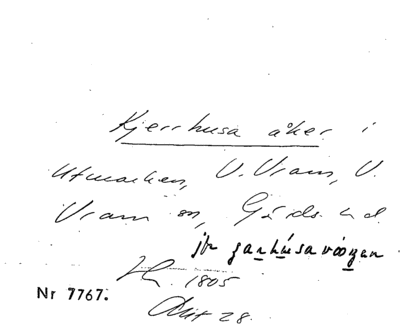 Kjerrhusa åker i
Utmarken, V. Vram, V.
Vram sn, Gärds hd.
jfr
1805
Nr 7767.
Akt 28.